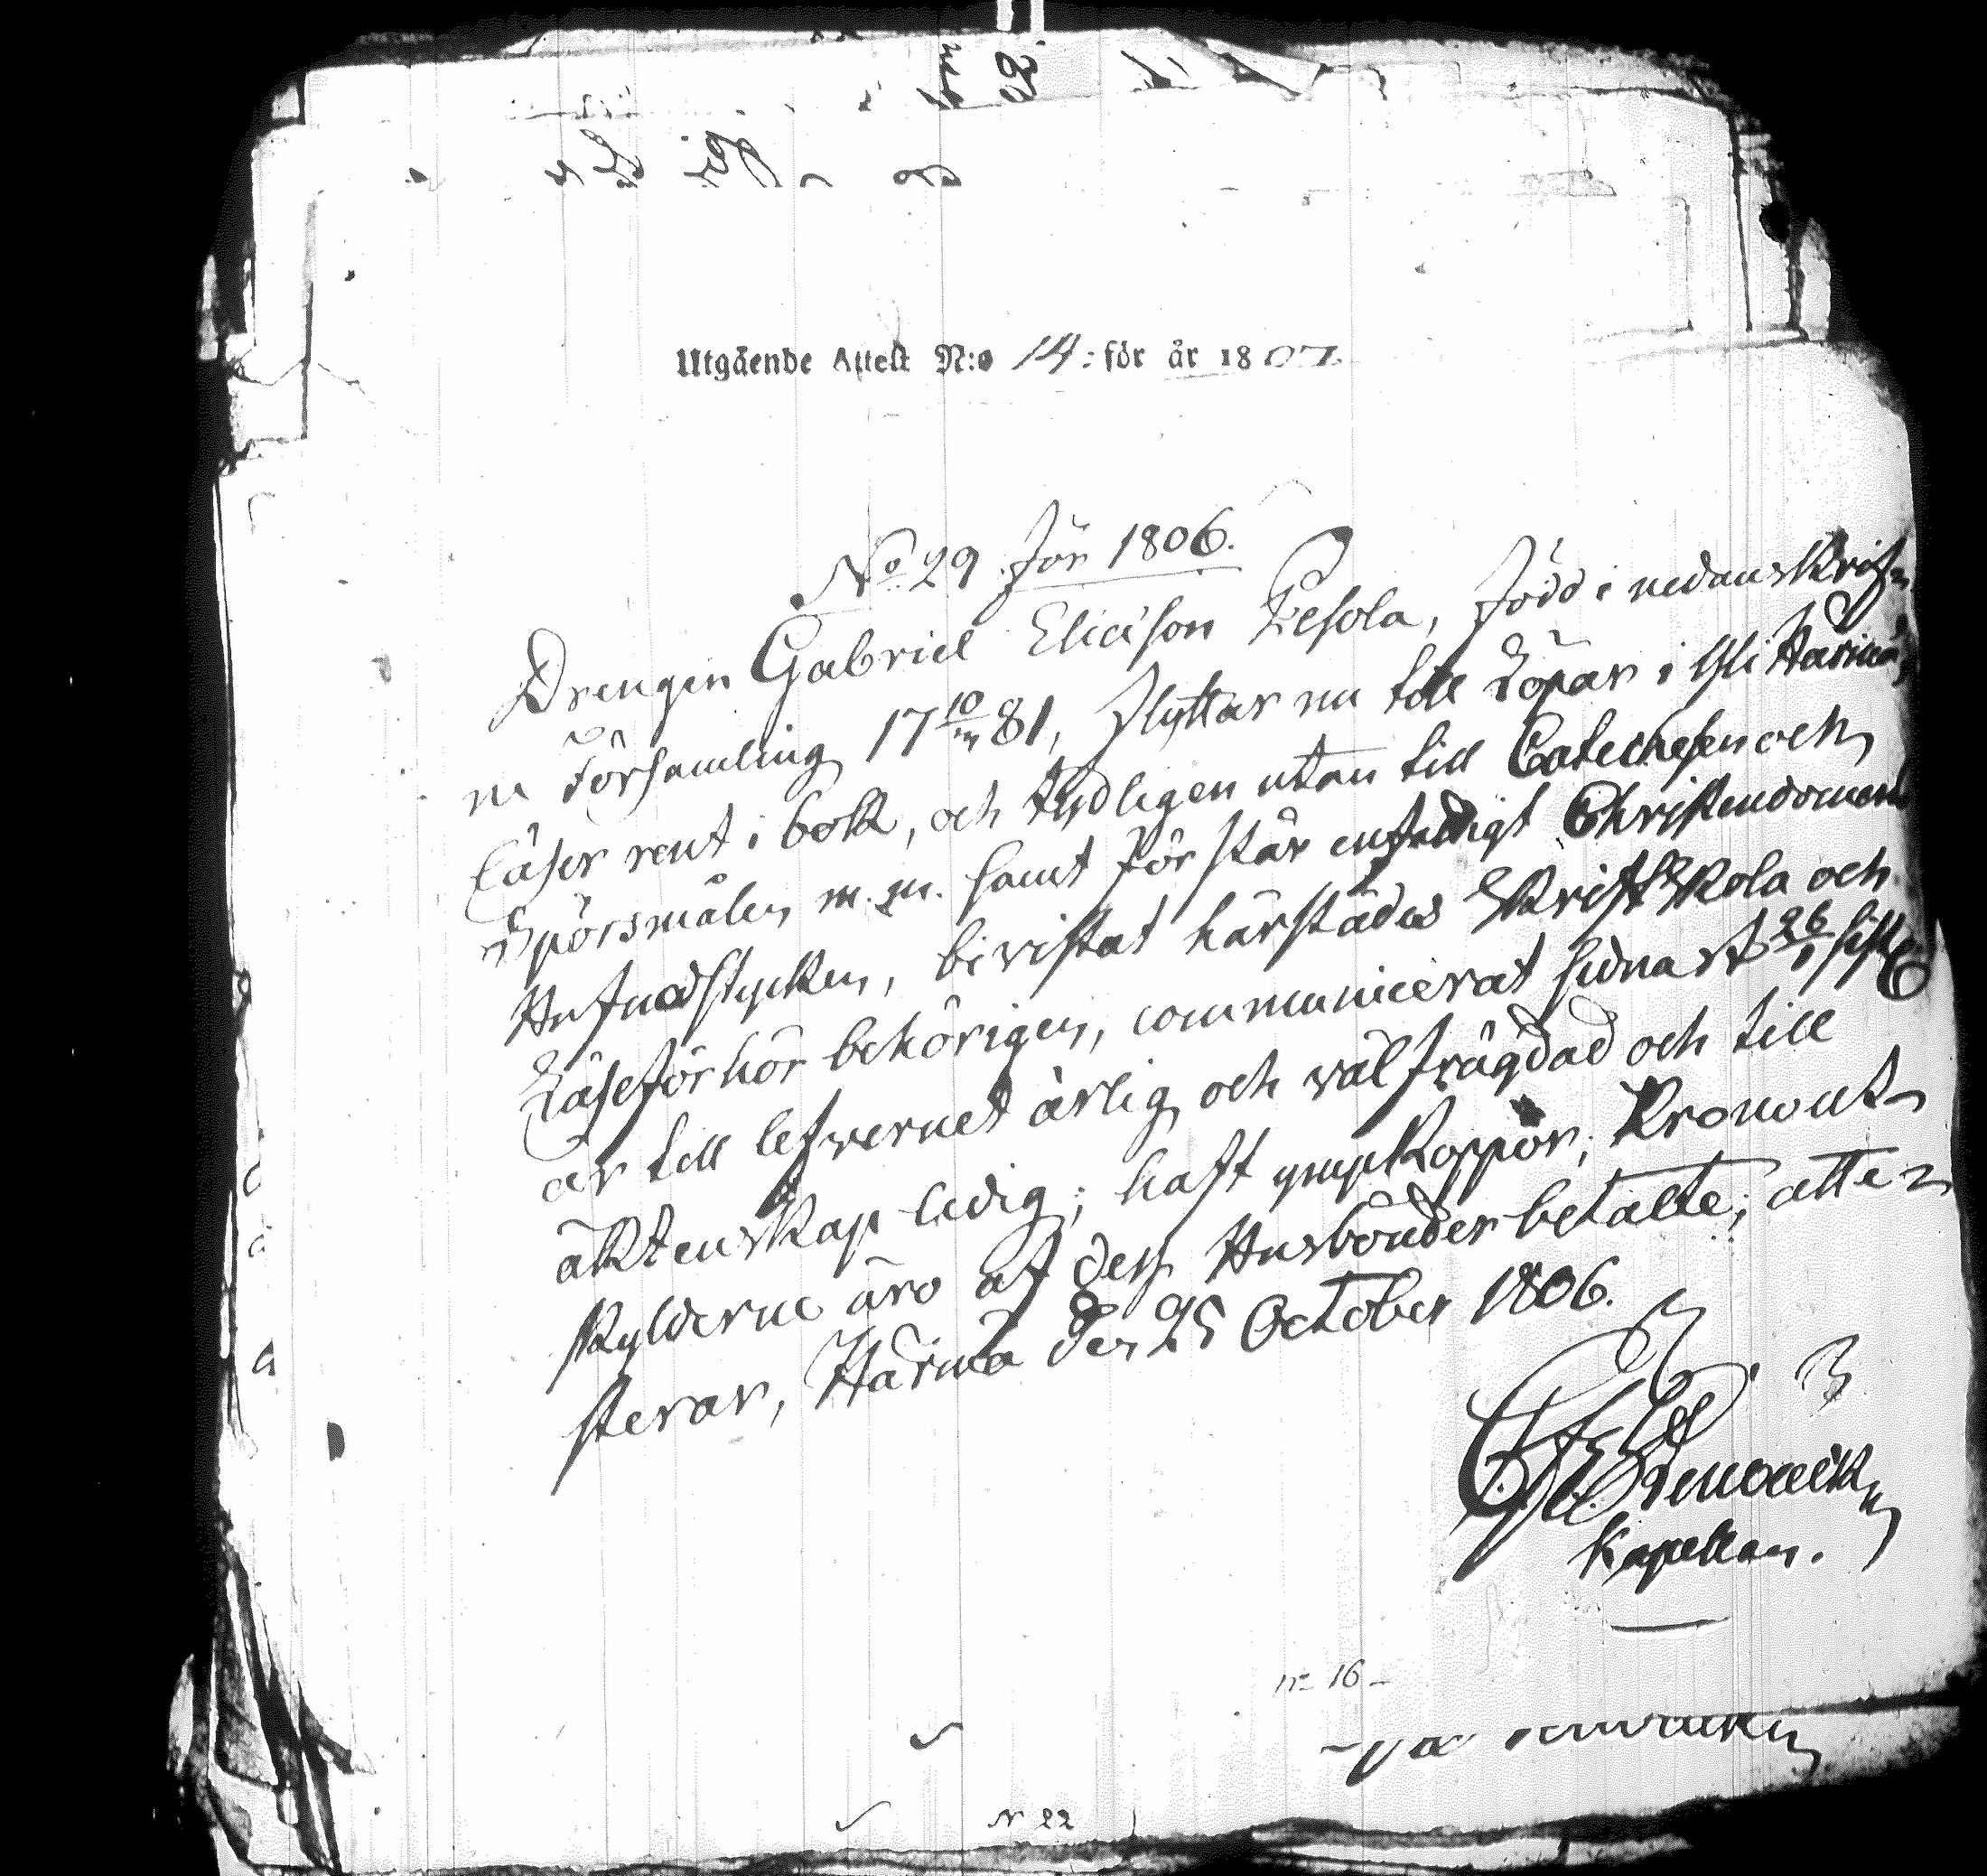 Utgående Attest N:o 14: för år 1807
No 29 för 1806.
Drengen Gabriel Elici'son Pesola, född i nedanskrif-
ne Församling 17 10/m 81, flyttar nu till Löpar i Yli Härmä,
läser rent i bok, och tydligen utan till Catechesen och
Spörsmålen m.m. samt förstår enfaldigt Christendomens
Hufvudstycken, bivistat härstädes Skriftskola och
Läseförhör behörigen, communicerat sidnast 26/
är till lefvernet ärlig och välfrägdad och till
äktenskap ledig; haft ympkoppor; Kronout-
skylderne äro af dess Husbönder betalte; atte-
sterar, Härmä den 25 October 1806.
Kapellan.
n= 16 -
N 22